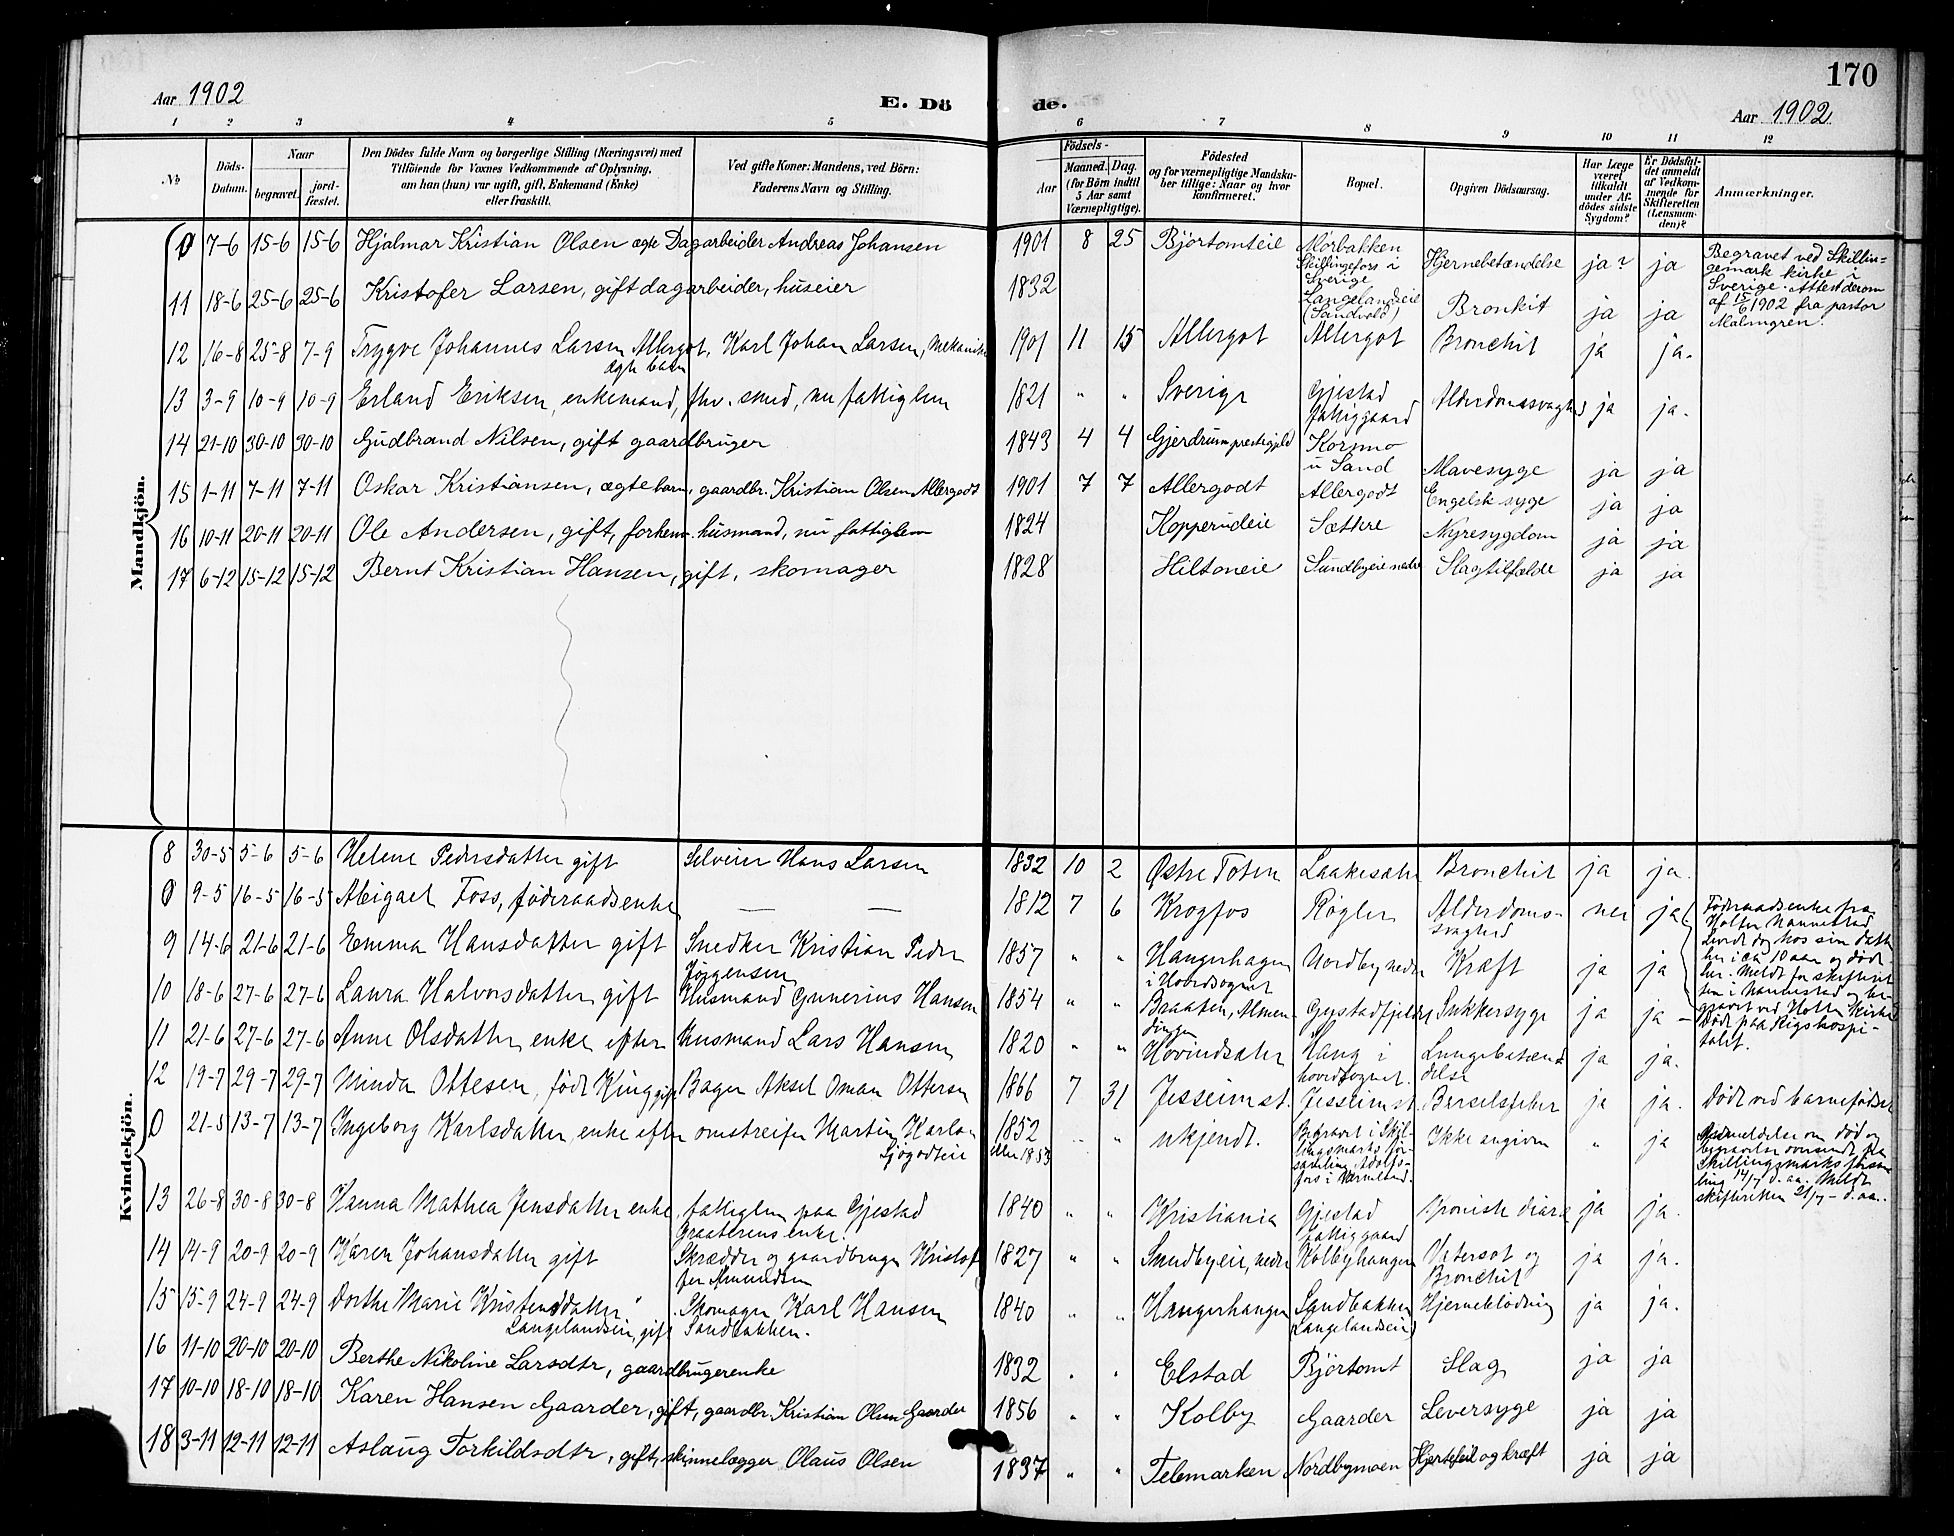 170
Aar 1902
E. Dö
de.
Aar 1902
1 2 3 4 5 6 7 8 9 10 11 12
No
Döds-Datum.
Naar
begravet.
jord-fæstet.
Den Dödes fulde Navn og borgerlige Stilling (Næringsvei) med
Tilföiende for Voxnes Vedkommende af Oplysning,
om han (hun) var ugift, gift, Enkemand (Enke)
eller fraskilt.
Ved gifte Koner: Mandens, ved Börn:
Faderens Navn og Stilling.
Födsels-
Aar
Maaned. Dag.
(for Börn indtil
5 Aar samt
Værnepligtige).
Födested
og for værnepligtige Mandska-
ber tillige: Naar og hvor
konfirmeret.
Bopæl.
Opgiven Dödsaarsag.
Har Læge
været
tilkaldt
under Af-
dödes sidste
Sygdom?
Er Dödsfal-
det anmeldt
af Vedkom-
mende for
Skifteretten
(Lensman-
den)?
Anmærkninger.
Mandkjön.
0 7-6 15-6 15-6 Hjalmar Kristian Olsen ægte Dagarbeider Andreas Johansen 1901 8 25 Björtomteie Morbakken Skillingsfors i Sverige Hjernebetændelse ja? ja Begravet ved Skillin-
gemark kirke i
Sverige. Attest derom
af 15/6 1902 fra pastor
Malmgren.
11 18-6 25-6 25-6 Kristofer Larsen, gift dagarbeider, huseier 1832 Langelandseie (Sandvold) Bronkit ja ja
12 16-8 25-8 7-9 Trygve Johannes Larsen Allergot, Karl Johan Larsen, Mekaniker 1901 11 15 Allergot Allergot Bronchit ja ja.
ægte barn
13 3-9 10-9 10-9 Erland Eriksen, enkemand, fhv. smed, nu fattiglem 1821 " " Sverige Gjestad fattiggaard Alderdomssvaghed ja ja.
14 21-10 30-10 30-10 Gudbrand Nilsen, gift gaardbruger 1843 4 4 Gjerdrum prestegjeld Kormo u Sand Mavesyge ja ja
15 1-11 7-11 7-11 Oskar Kristiansen, ægte barn, gaardbr. Kristian Olsen Allergodt 1901 7 7 Allergodt Allergodt Engelsk syge ja ja
16 10-11 20-11 20-11 Ole Andersen, gift, forhenv. husmand, nu fattiglem 1824 Kopperudeie Sættre Nyresygdom ja ja
17 6-12 15-12 15-12 Bernt Kristian Hansen, gift, skomager 1828 Hiltoneie Sundbyeie nedre Slagtilfælde ja ja
Kvindekjön.
8 30-5 5-6 5-6 Helene Pedersdatter gift Selveier Hans Larsen 1832 10 2 Østre Toten Laakesæter Bronchit ja ja.
0 9-5 16-5 16-5 Abigael Foss, føderaadsenke — — 1812 7 6 Krogfos Røgler Alderdoms-
svaghed nei ja Føderaadsenke fra
Holter Nannestad
Levede dog hos sin datter
her i ca 10 aar og døde
her. Meldt for skifteret
ten i Nannestad og be-
gravet ved Holter Kirke
9 14-6 21-6 21-6 Emma Hansdatter gift Snedker Kristian Peder
Jørgensen 1857 " " Hangerhagen
i Hovedsognet Nordby nedre Kræft ja ja
10 18-6 27-6 27-6 Laura Halvorsdatter gift Husmand Gunerius Hansen 1854 " " Braaten, Almen-
dingen Gjestadfjeldet Sukkersyge ja ja – Død paa Rigshospi-
talet.
11 21-6 27-6 27-6 Anne Olsdatter enke efter Husmand Lars Hansen 1820 " " Hovindsæter Haug i
hovedsognet. Lungebetænd
delse ja ja.
12 19-7 29-7 29-7 Minda Ottesen, født King gift Bager Aksel Oman Ottersen 1866 7 31 Jesseim st. Jesseim st. Barselsfeber ja ja. Død ved barnefødsel
0 21-5 13-7 13-7 Ingeborg Karlsdatter enke efter omstreifer Martin Karlsen
Sjøgodteie 1852
eller 1853 " ukjendt. Begravet i Skil-
lingsmarks for-
samling, Adolfs-
fors i Værmland. Ikke angiven " ja Anmeldelse om død og
begravelse oversendt fra
Skillingsmarks försam
ling 14/7 d. aa. Meldt
skifteretten 21/7 – d. aa.
13 26-8 30-8 30-8 Hanna Mathea Jensdatter enke, fattiglem paa Gjestad
Graaterens enke. 1840 " " Kristiania Gjestad
fattiggaard Kronisk diaré ja ja.
14 14-9 20-9 20-9 Karen Johansdatter gift Skrædder og gaardbruger Kristof
fer Amundsen 1827 " " Sundbyeie, nedre Kolbyhangen Vatersot og
Bronchit ja ja.
15 15-9 24-9 24-9 Dorthe Marie Kristensdatter Skomager Karl Hansen
Langelandseie, gift Sandbakken. 1840 " " Hangerhangen Sandbakken
(Langelandseie) Hjerneblödning ja ja.
16 11-10 20-10 20-10 Berthe Nikoline Larsdtr, gaardbrugerenke 1832 " " Elstad Björtomt Slag ja ja
17 10-10 18-10 18-10 Karen Hansen Gaarder, gift, gaardbr. Kristian Olsen Gaarder 1856 " " Kolby Gaarder Leversyge ja ja
18 3-11 12-11 12-11 Aslaug Torkildsdtr, gift, skinnelægger Olaus Olsen 1837 " " Telemarken Nordbymoen Hjertefeil og kræft ja ja